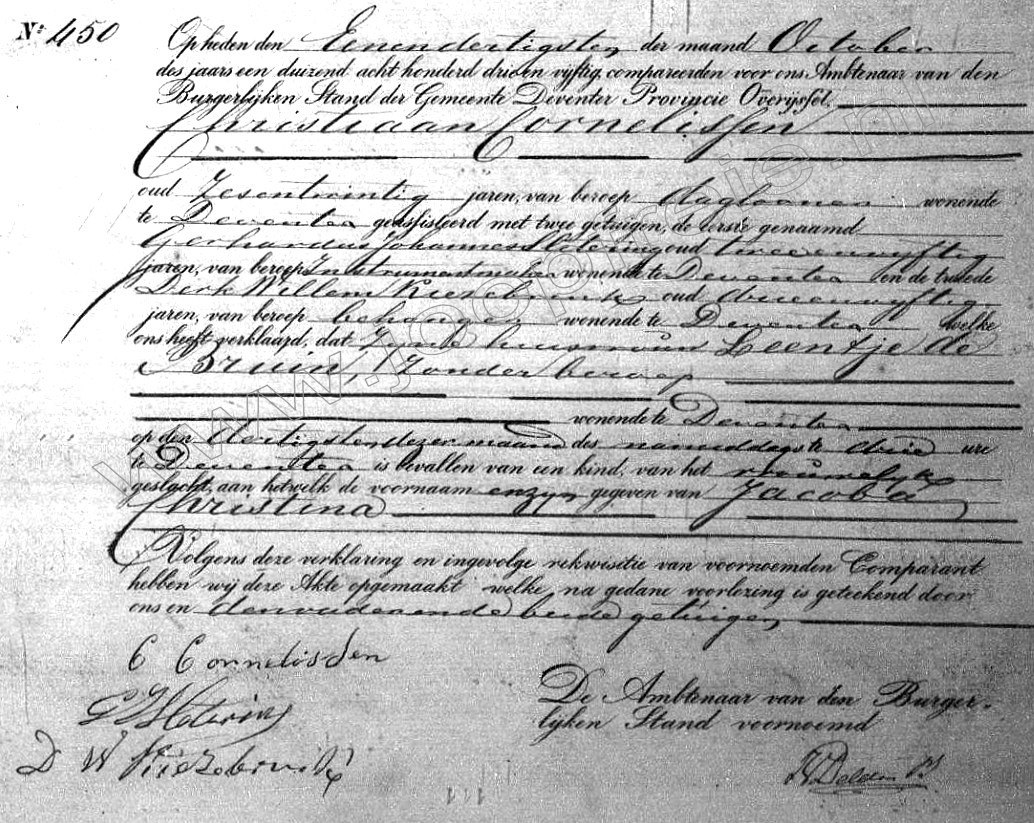 No: 450
Op heden den Eenendertigsten der maand October
des jaars een duizend acht honderd drie en vijftig, compareerden voor ons Ambtenaar van den
Burgerlijken Stand der Gemeente Deventer Provincie Overijssel.
Christiaan Cornelissen
oud Zesentwintig jaren, van beroep daglooner wonende
te Deventer geassisteerd met twee getuigen, de eerste genaamd
Gerhardus Johannes oud tweeenvyftig
jaren, van beroep Instrumentmaker wonende te Deventer en de tweede
Dirk Willem oud drieenvyftig
jaren, van beroep behanger wonende te Deventer welke
ons heeft verklaard, dat zyne huisvrouw Leentje de
Bruin, zonder beroep
wonende te Deventer
op den dertigsten dezer maand des namiddags te drie ure
te Deventer is bevallen van een kind, van het vrouwelyk
geslacht, aan hetwelk de voornaam enzyn gegeven van Jacoba
Christina
Volgens deze verklaring en ingevolge rekwisitie van voornoemden Comparant
hebben wij deze Akte opgemaakt welke na gedane voorlezing is geteekend door
ons en den vader en de beide getuigen
C Cornelissen
D W
De Ambtenaar van den Burger-
lijken Stand voornoemd